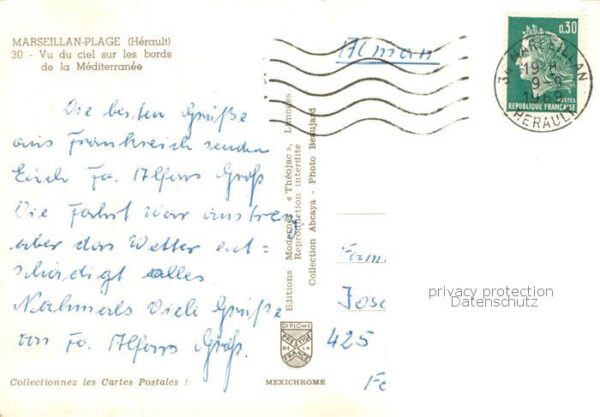 MARSEILLAN-PLAGE (Hérault)
30 - Vu du ciel sur les bords
de la Méditerranée
Die besten Grüße
aus Frankreich senden
Euch Fa. Alfons Groß
Die Fahrt war anstreng
aber das Wetter ent=
schädigt alles.
Nochmals Viele Grüße
von Fa. Alfons Groß.
Collectionnez les Cartes Postales !
Editions Modernes « Théojac », Limoges
Reproduction interdite
Collection Abcaya - Photo Beaujard
DIPLOME
PRESTIGE
FRANCE
MEXICHROME
0,30
POSTES
REPUBLIQUE FRANÇAISE
34 MARSEILLAN
HERAULT
Firm
Jose
425
privacy protection
Datenschutz